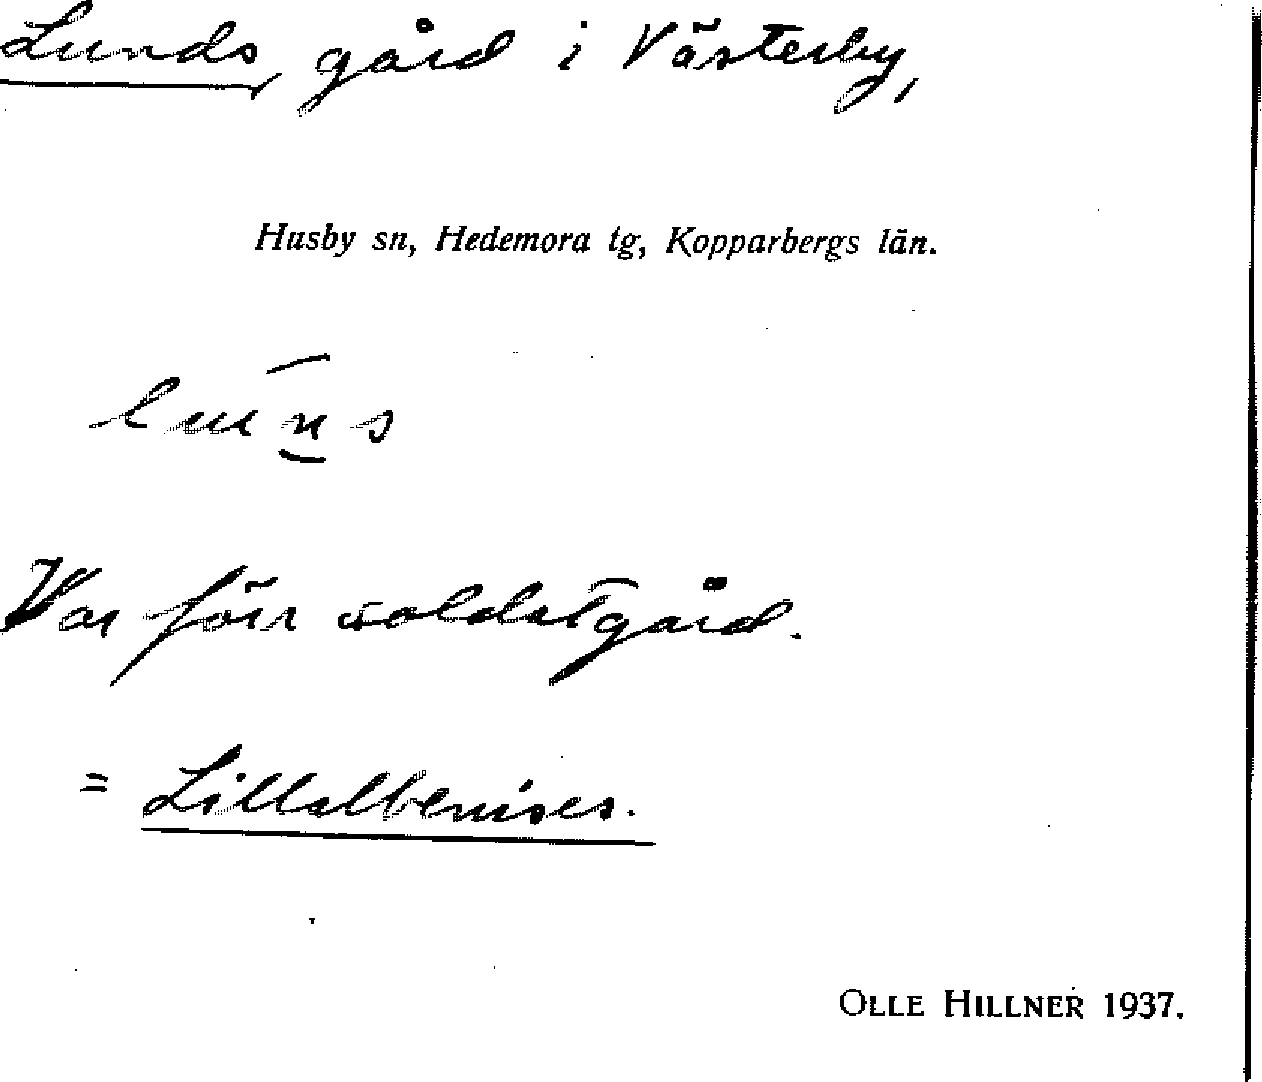 Lunds, gård i Västerby,
Husby sn, Hedemora tg, Kopparbergs län.
luns
Var förr soldatgård.
= Lillalbenises.
OLLE HILLNER 1937.